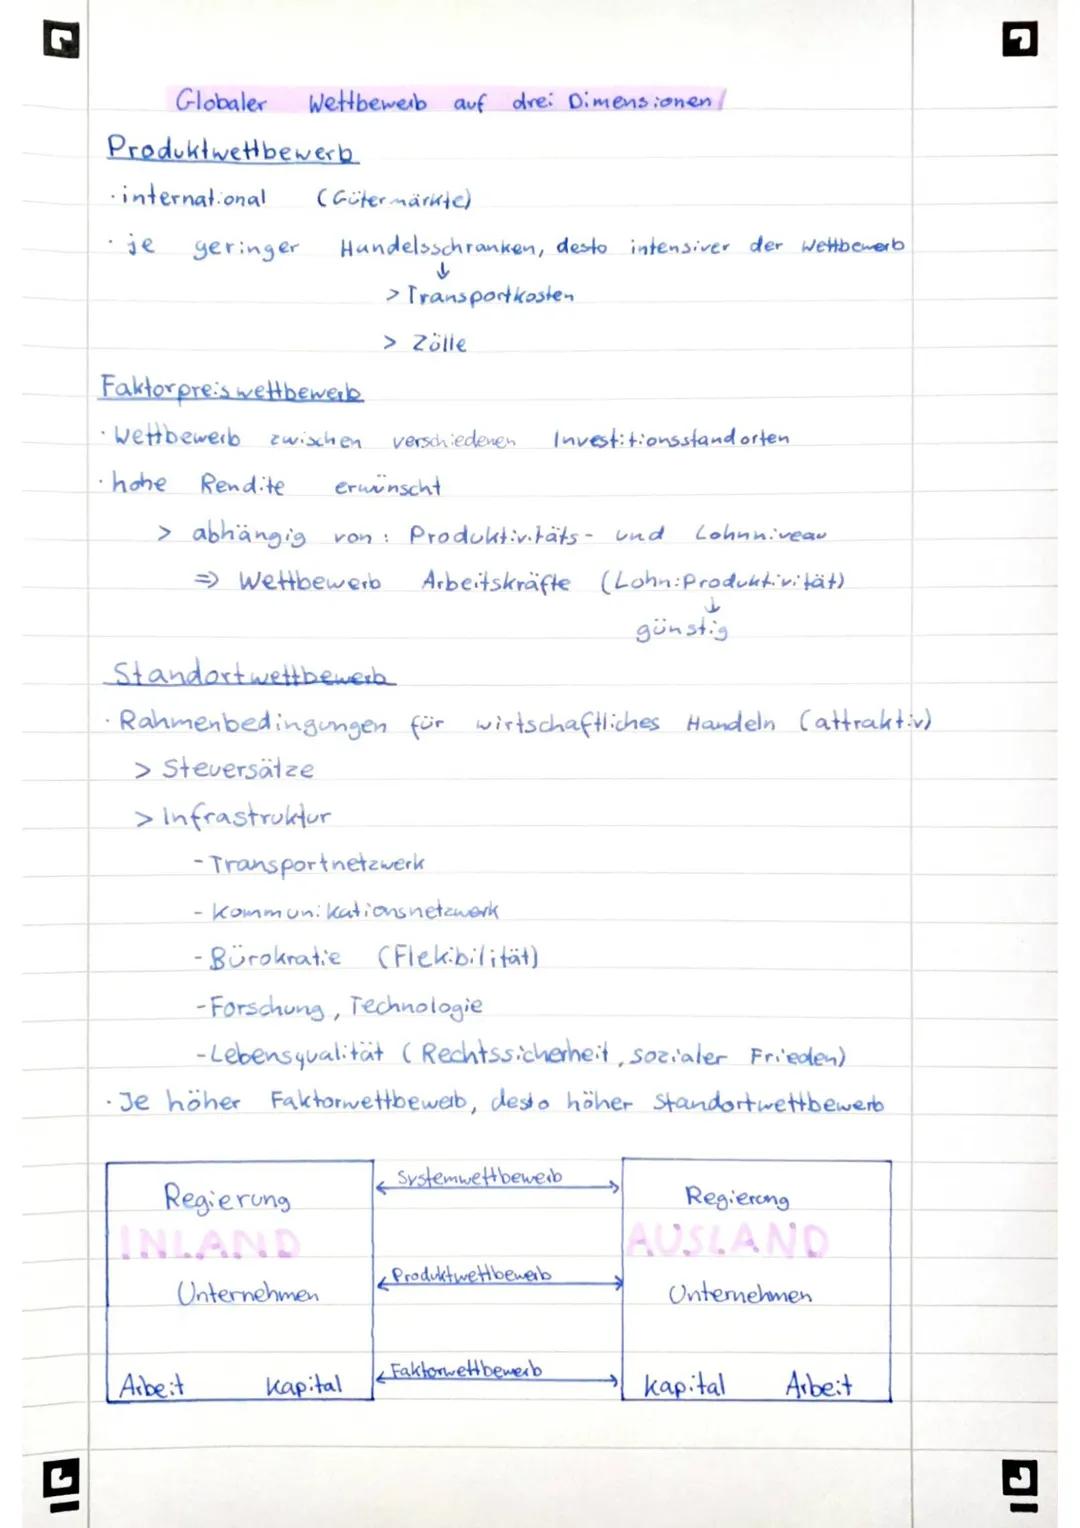 Globaler Wettbewerb auf drei Dimensionen
Produktwettbewerb
· international (Gütermärkte)
· je geringer Handelsschranken, desto intensiver der Wettbewerb
↓
> Transportkosten
> Zölle
Faktorpreiswettbewerb
· Wettbewerb zwischen verschiedenen Investitionsstandorten
· hohe Rendite erwünscht
> abhängig von: Produktivitäts- und Lohnniveau
⇒ Wettbewerb Arbeitskräfte (Lohn:Produktivität)
↓
günstig
Standortwettbewerb
· Rahmenbedingungen für wirtschaftliches Handeln (attraktiv)
> Steuersätze
> Infrastruktur
- Transportnetzwerk
- Kommunikationsnetzwerk
- Bürokratie (Flekibilität)
- Forschung, Technologie
- Lebensqualität (Rechtssicherheit, sozialer Frieden)
· Je höher Faktorwettbewerb, desto höher Standortwettbewerb
Systemwettbewerb
Regierung Regierung
INLAND AUSLAND
Produktwettbewerb
Unternehmen Unternehmen
Faktorwettbewerb
Arbeit Kapital Kapital Arbeit